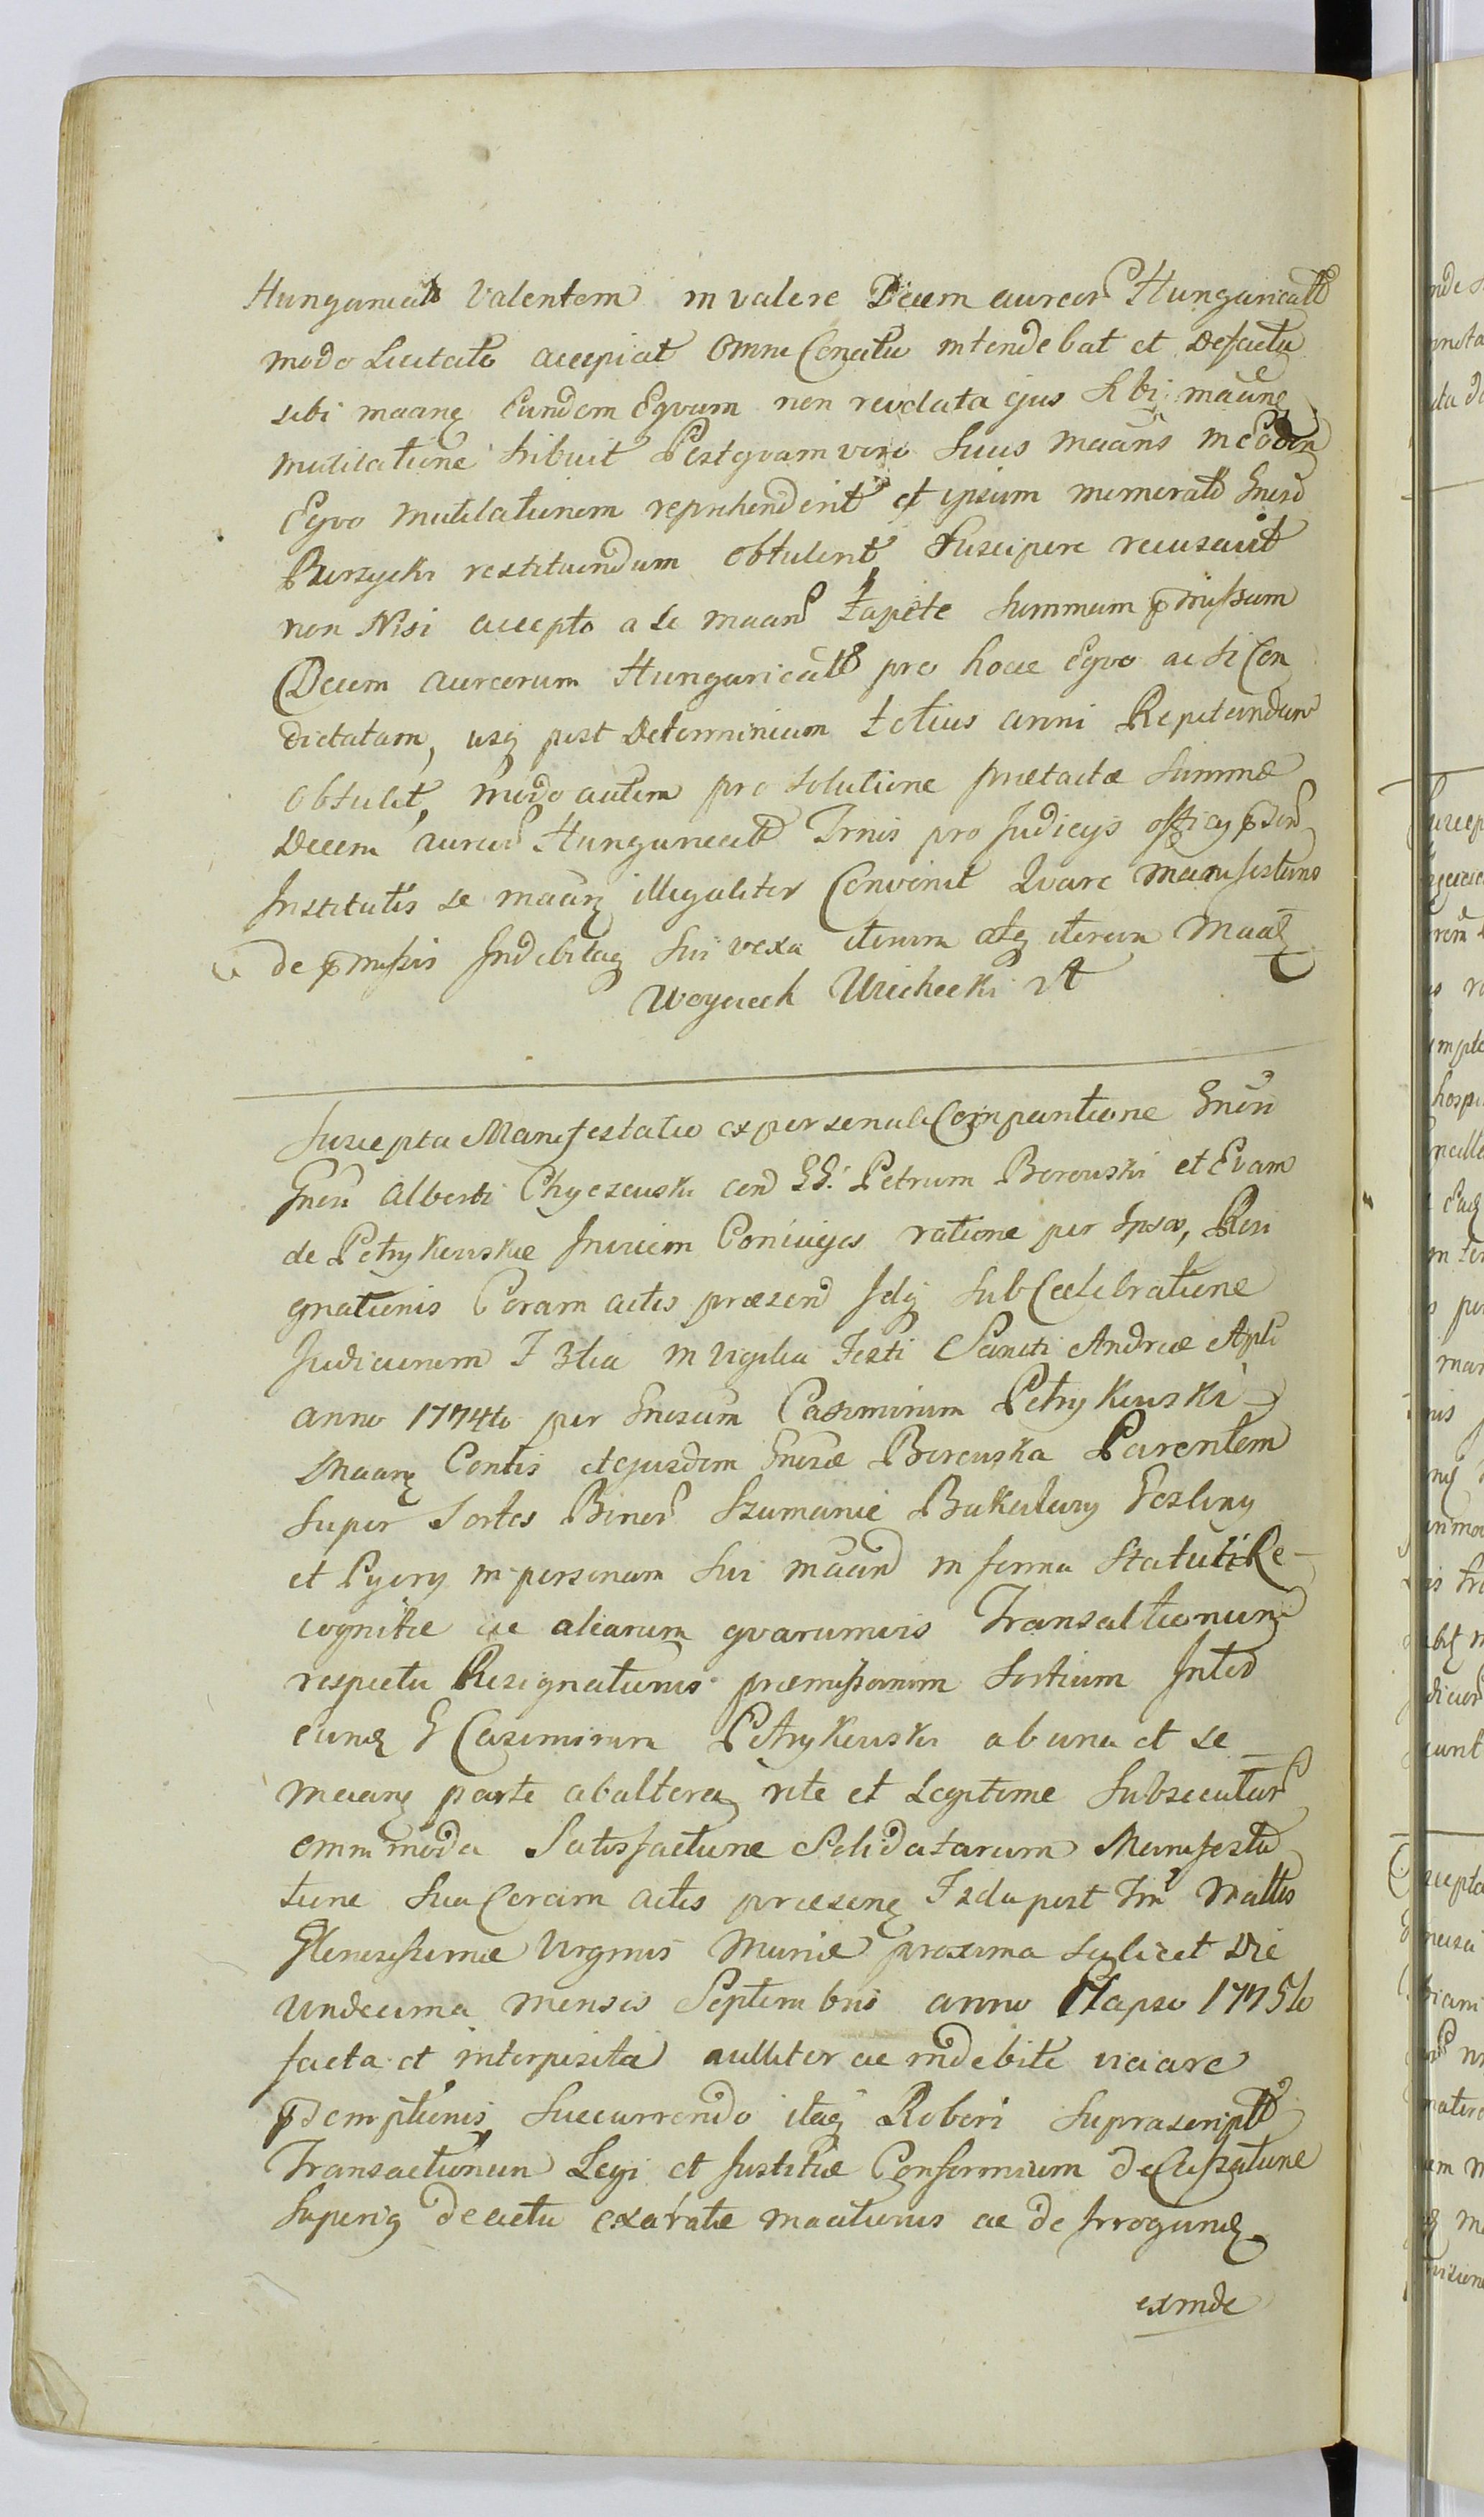 Hungarical valentem in valere Decem aureor Hungaricall
modo Licitato accepiat omni Conatu intendebat et Defactu
sibi maanę Eundem Eqvum non revelata ejus sibi maanę
mutilatione tribuit Postqvam vero suus maans in eodem
Eqvo mutilationem reprehenderit et ipsum memorato Gneso
restituendum obtulerit suscipere recusavit
non Nisi accepto a se maan Tapete Summam pmissam
Decem aureorum Hungaricall pro hocce Eqvo ac si Con
dictatam, usq post Determinium totius anni Repetendam
obtulit, modo autem pro solutione praetactae Summae
Decem aureor Hungaricall Trnis pro Judicijs officij
Institutis se maanę illegaliter Convenit Qvare manifestans
de pmissis Indebitaq sui vexa iterum atq iterum Maat
Woyciech Wiechecki
Suscepta Manifestatio ex personali Comparitione Gnesi
Gnesi Alberti Chyczewski con GG. Petrum Borowski et Evam
de Petrykowskie Invicem Coniuges ratione per Ipsos, Resi
gnationis Coram actis praesend Idq sub Caelebratione
Judiciorum F 3tia in Vigilia Festi Sancti Andreae Apli
anno 1774to per Gnesum Casimirum Petrykowski
Maanę Contis et ejusdem Gnesae Borowska Parentem
super Sortes Bonor Szumanie Bakalary Gozliny
et Pyory in personam sui maand in forma Statuti Re-
cognitae ac aliarum qvarumvis Transactionum
respectu Resignationis praemissarum Sortium Inter
eund G Casimirum Petrykowski ab una et se
maanę parte ab altera rite et Legitime Subsecutar
omnimoda Satisfactione Solidatarum Manifesta
tione sua Coram actis praesenę F 2da post Fm Nattis
Glenissimae Virginis Mariae proxima scilicet Die
undecima mensis Septembris anno Elapso 1775to
facta et interposita nulliter ac indebite viciare
psemptionis, Succurrendo itaq Robori Suprascript
Transactionum Legi et Justitiae Conformium de Cassatione
Superiq de actu exaratae maationis ac de Irrogand
exinde